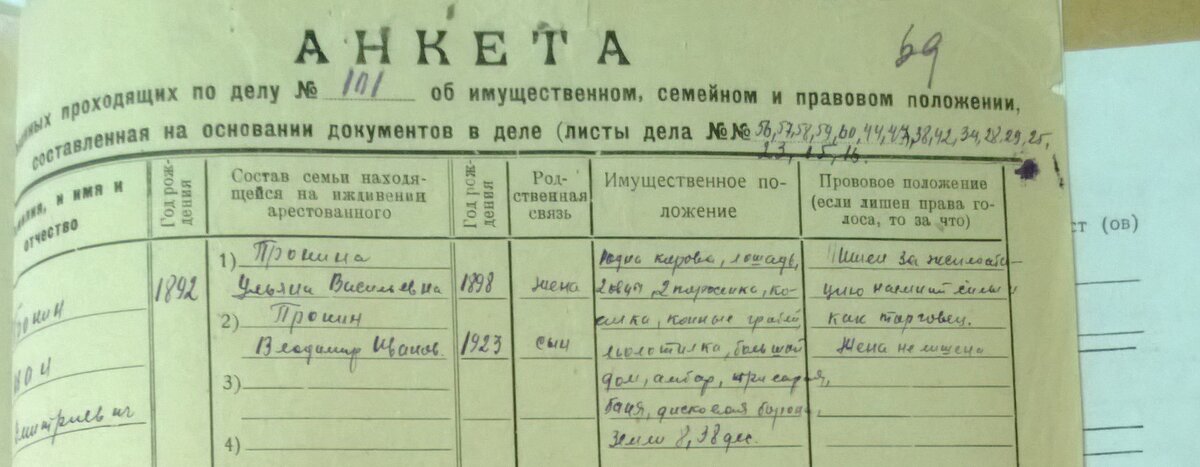 69
АНКЕТА
проходящих по делу № 101 об имущественном, семейном и правовом положении,
составленная на основании документов в деле (листы дела №№ 56, 57, 58, 59, 60, 44, 43, 38, 42, 34, 28, 29, 25,
23, 15, 16.
и имя и
отчество
Год рож-
дения
Состав семьи находя-
щейся на иждивении
арестованного
Год рож-
дения
Род-
ственная
связь
Имущественное по-
ложение
Прововое положение
(если лишен права го-
лоса, то за что)
ст (ов)
1) Пронина
Ульяна Васильевна
2) Пронин
Владимир Иванов.
3)
4)
1892
1898
1923
жена
сын
корова, лошадь,
2 овцы, 2 поросенка, ко-
силка, конные грабли
молотилка, большой
дом, амбар, три сарая,
баня, дисковая борона,
земли 8,38 дес.
Лишен за эксплоата-
цию
как торговец.
Жена не лишена